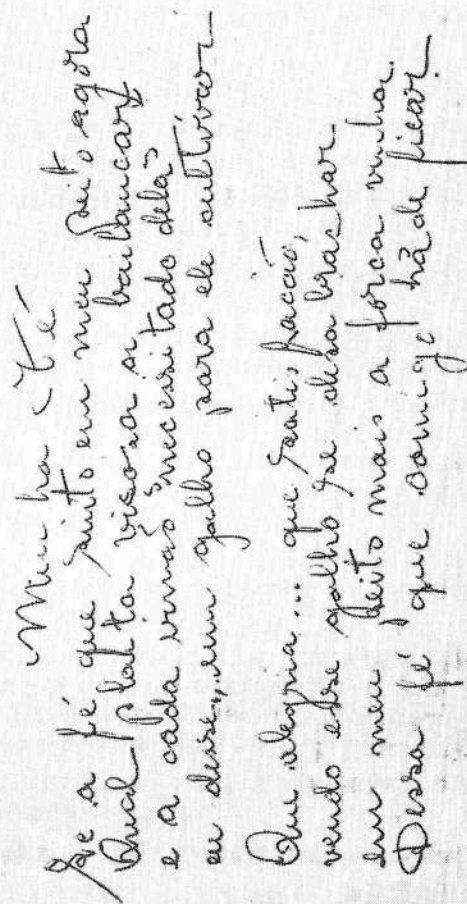 Minha Fé
Se a fé que sinto em meu peito agora
Qual planta viçosa a balançar
e a cada irmão necesitado dela
eu desse, um galho para ele cultivar
Que alegria... que satisfação,
vendo esse galho se desabrochar
em meu peito mais a força vinha.
Dessa fé, que comigo há de ficar.